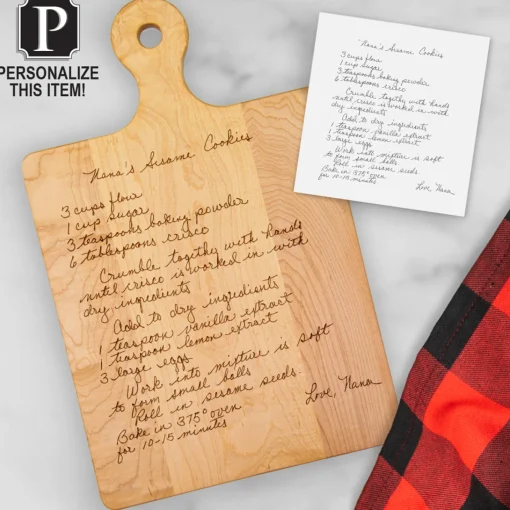 P
PERSONALIZE
THIS ITEM!
Nana's Sesame Cookies
3 cups flour
1 cup sugar
3 teaspoons baking powder
6 tablespoons crisco
Crumble togethy with hands
until crisco is worked in with
dry ingredients
Add to dry ingredients
1 teaspoon vanilla extract
1 teaspoon lemon extract
3 large eggs
Work into mixture is soft
to form small balls
Roll in sesame seeds.
Bake in 375° oven
for 10-15 minutes
Love, Nana
Nana's Sesame Cookies
3 cups flour
1 cup sugar
3 teaspoons baking powder
6 tablespoons crisco
Crumble togethy with hands
until crisco is worked in with
dry ingredients
Add to dry ingredients
1 teaspoon vanilla extract
1 teaspoon lemon extract
3 large eggs
Work into mixture is soft
to form small balls
Roll in sesame seeds
Bake in 375° oven
for 10-15 minutes
Love, Nana